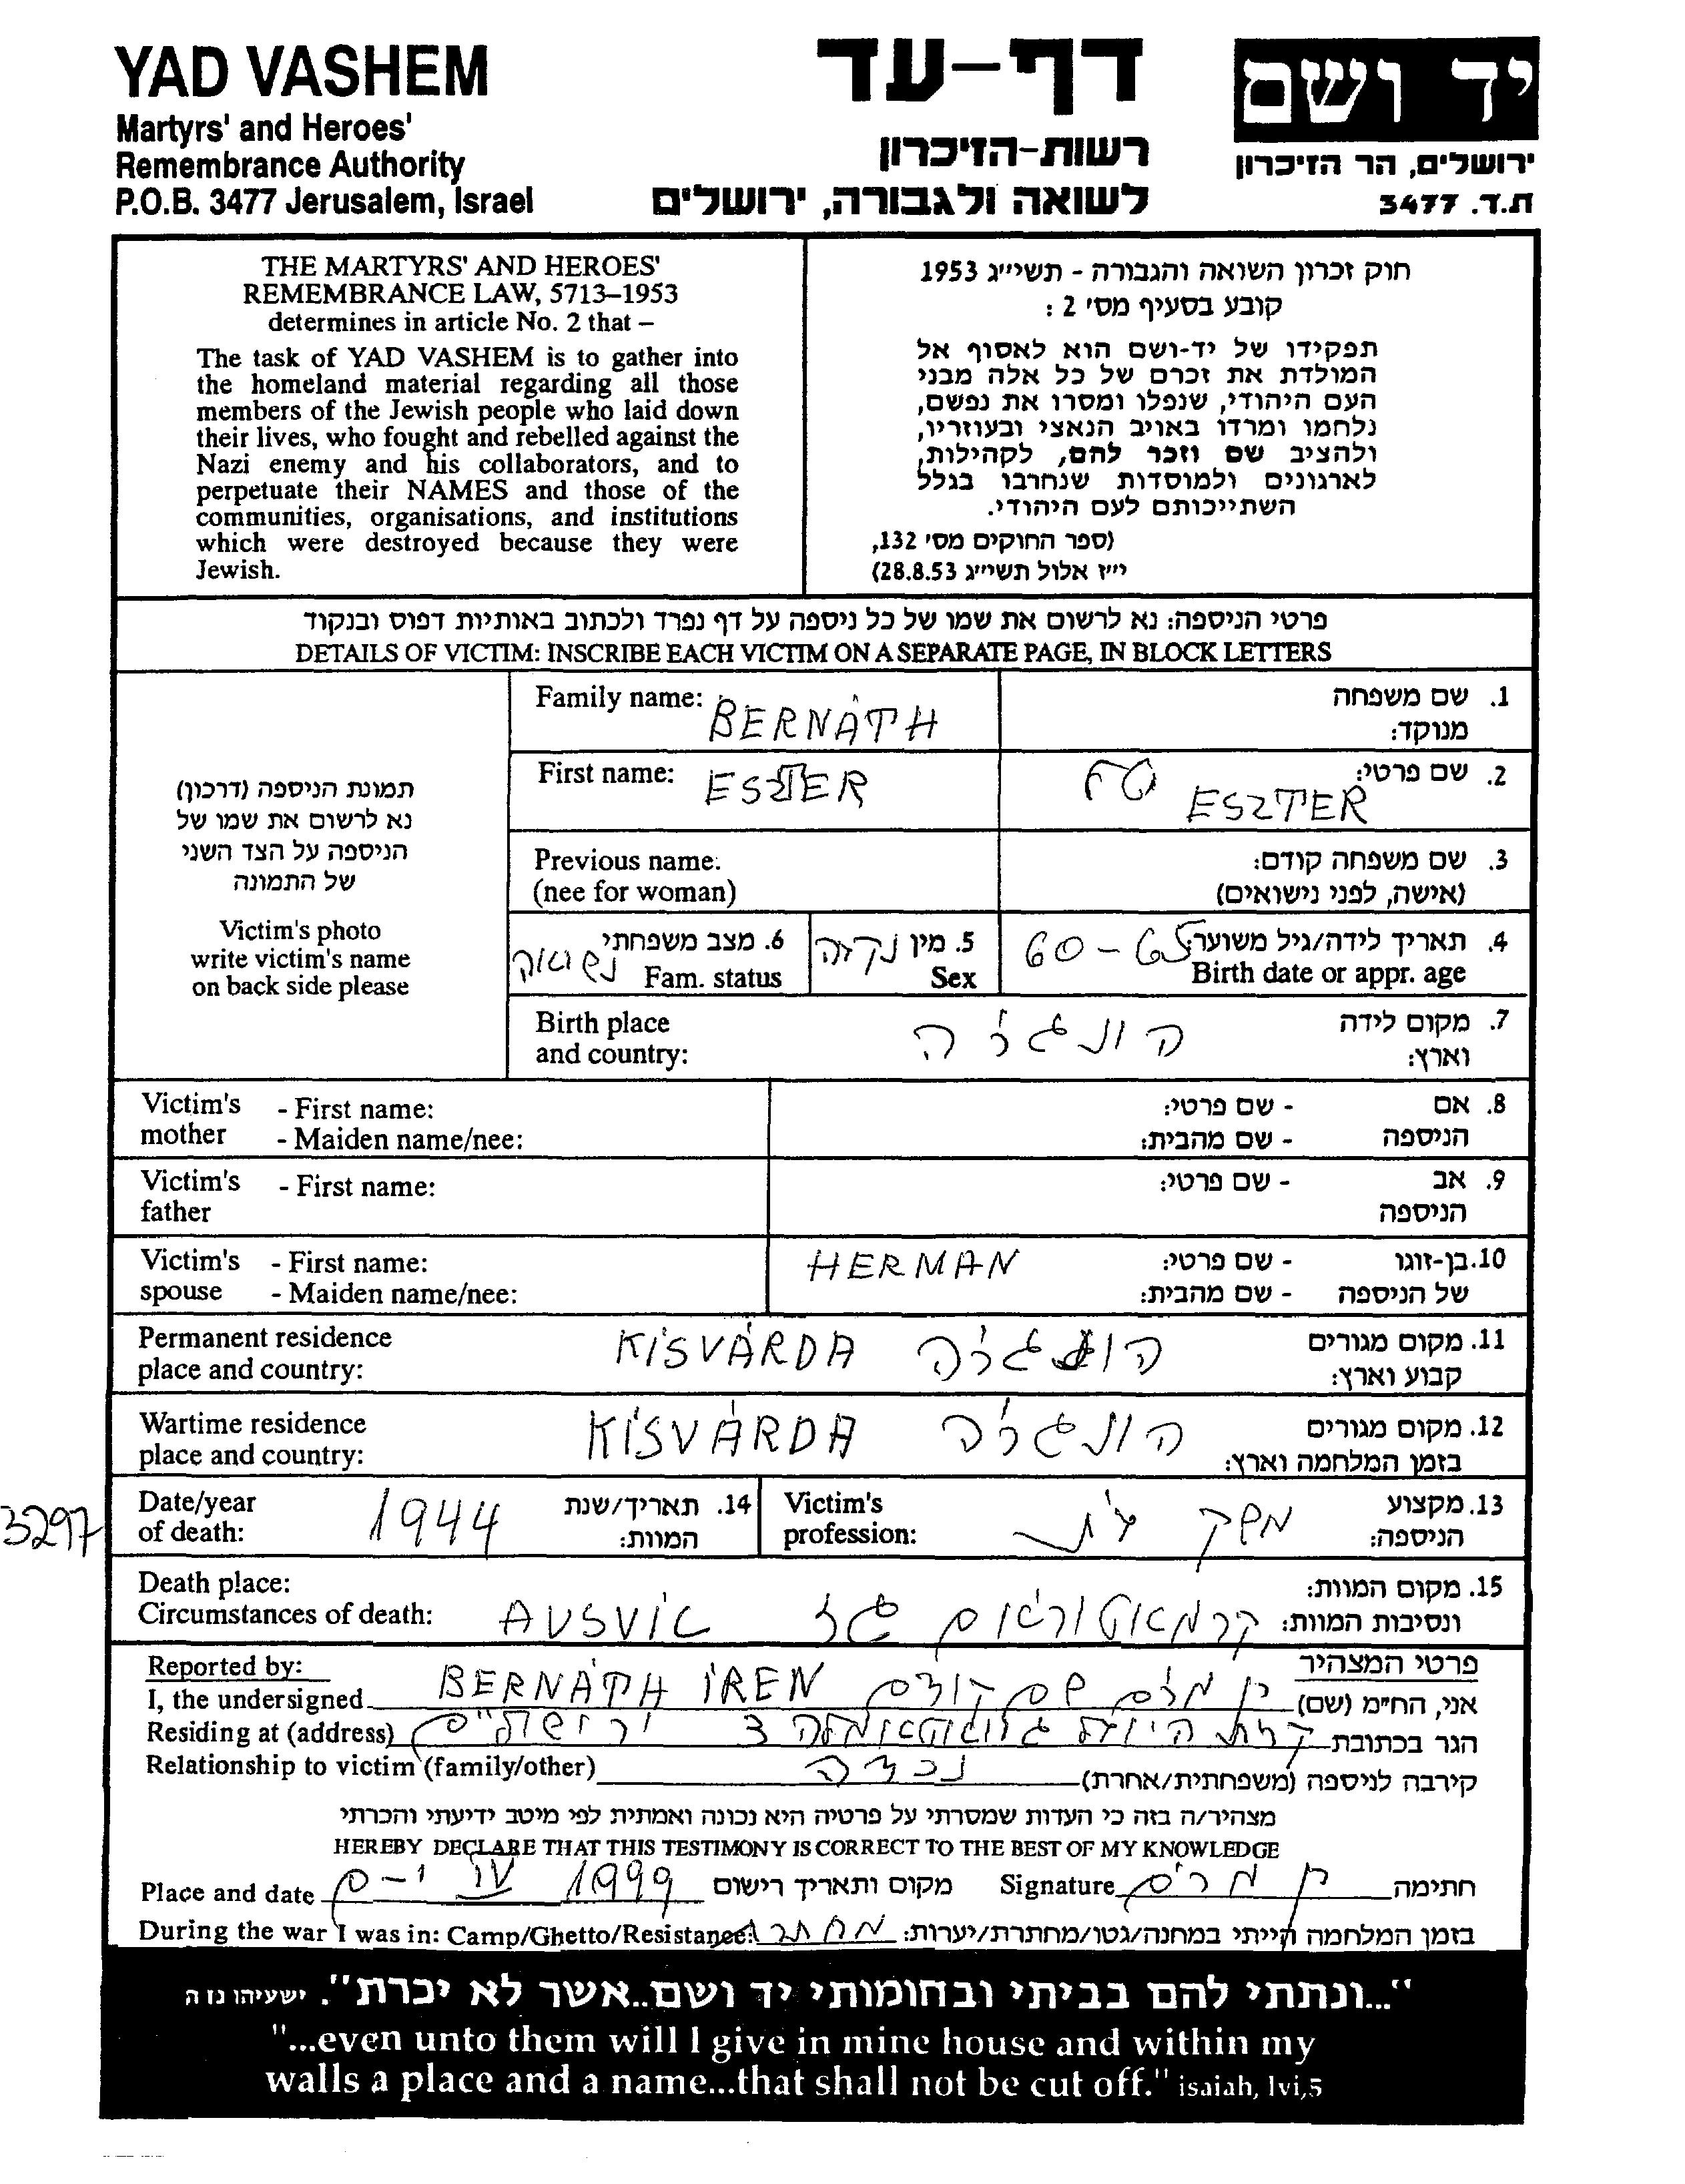 YAD VASHEM
Martyrs' and Heroes'
Remembrance Authority
P.O.B. 3477 Jerusalem, Israel
דף-עד
רשות-הזיכרון
לשואה ולגבורה, ירושלים
יד ושם
ירושלים, הר הזיכרון
ת.ד. 3477
THE MARTYRS' AND HEROES'
REMEMBRANCE LAW, 5713–1953
determines in article No. 2 that –
The task of YAD VASHEM is to gather into
the homeland material regarding all those
members of the Jewish people who laid down
their lives, who fought and rebelled against the
Nazi enemy and his collaborators, and to
perpetuate their NAMES and those of the
communities, organisations, and institutions
which were destroyed because they were
Jewish.
חוק זכרון השואה והגבורה - תשי״ג 1953
קובע בסעיף מס' 2 :
תפקידו של יד-ושם הוא לאסוף אל
המולדת את זכרם של כל אלה מבני
העם היהודי, שנפלו ומסרו את נפשם,
נלחמו ומרדו באויב הנאצי ובעוזריו,
ולהציב שם וזכר להם, לקהילות,
לארגונים ולמוסדות שנחרבו בגלל
השתייכותם לעם היהודי.
(ספר החוקים מס' 132,
י״ז אלול תשי״ג 28.8.53)
פרטי הניספה: נא לרשום את שמו של כל ניספה על דף נפרד ולכתוב באותיות דפוס ובנקוד
DETAILS OF VICTIM: INSCRIBE EACH VICTIM ON A SEPARATE PAGE, IN BLOCK LETTERS
תמונת הניספה (דרכון)
נא לרשום את שמו של
הניספה על הצד השני
של התמונה
Victim's photo
write victim's name
on back side please
Family name: BERNÁTH
1. שם משפחה
מנוקד:
First name: ESZTER
2. שם פרטי: ESZTER
Previous name:
(nee for woman)
3. שם משפחה קודם:
(אישה, לפני נישואים)
6. מצב משפחתי נשואה
Fam. status
5. מין נקבה
Sex
4. תאריך לידה/גיל משוער: 60-65
Birth date or appr. age
Birth place
and country:
הונגריה
7. מקום לידה
וארץ:
Victim's mother - First name:
- Maiden name/nee:
8. אם הניספה - שם פרטי:
- שם מהבית:
Victim's father - First name:
9. אב הניספה - שם פרטי:
Victim's spouse - First name:
- Maiden name/nee:
HERMAN
10. בן-זוגו של הניספה - שם פרטי:
- שם מהבית:
Permanent residence
place and country:
KISVÁRDA הונגריה
11. מקום מגורים
קבוע וארץ:
Wartime residence
place and country:
KISVÁRDA הונגריה
12. מקום מגורים
בזמן המלחמה וארץ:
3297
Date/year
of death:
1944
14. תאריך/שנת
המוות:
Victim's
profession:
משק בית
13. מקצוע
הניספה:
Death place:
Circumstances of death:
AUSVIC קרמאטוראום גז
15. מקום המוות:
ונסיבות המוות:
Reported by:
פרטי המצהיר
I, the undersigned BERNÁTH IREN שם קודם כץ מרים אני, הח״מ (שם)
Residing at (address) ירושלים 3 הגר בכתובת
Relationship to victim (family/other) נכדה קירבה לניספה (משפחתית/אחרת)
מצהיר/ה בזה כי העדות שמסרתי על פרטיה היא נכונה ואמתית לפי מיטב ידיעתי והכרתי
HEREBY DECLARE THAT THIS TESTIMONY IS CORRECT TO THE BEST OF MY KNOWLEDGE
Place and date י-ם IV 1999 מקום ותאריך רישום
Signature כץ מרים חתימה
During the war I was in: Camp/Ghetto/Resistance: בזמן המלחמה הייתי במחנה/גטו/מחתרת/יערות:
"...ונתתי להם בביתי ובחומותי יד ושם..אשר לא יכרת". ישעיהו נו ה
"...even unto them will I give in mine house and within my
walls a place and a name...that shall not be cut off." isaiah, lvi,5